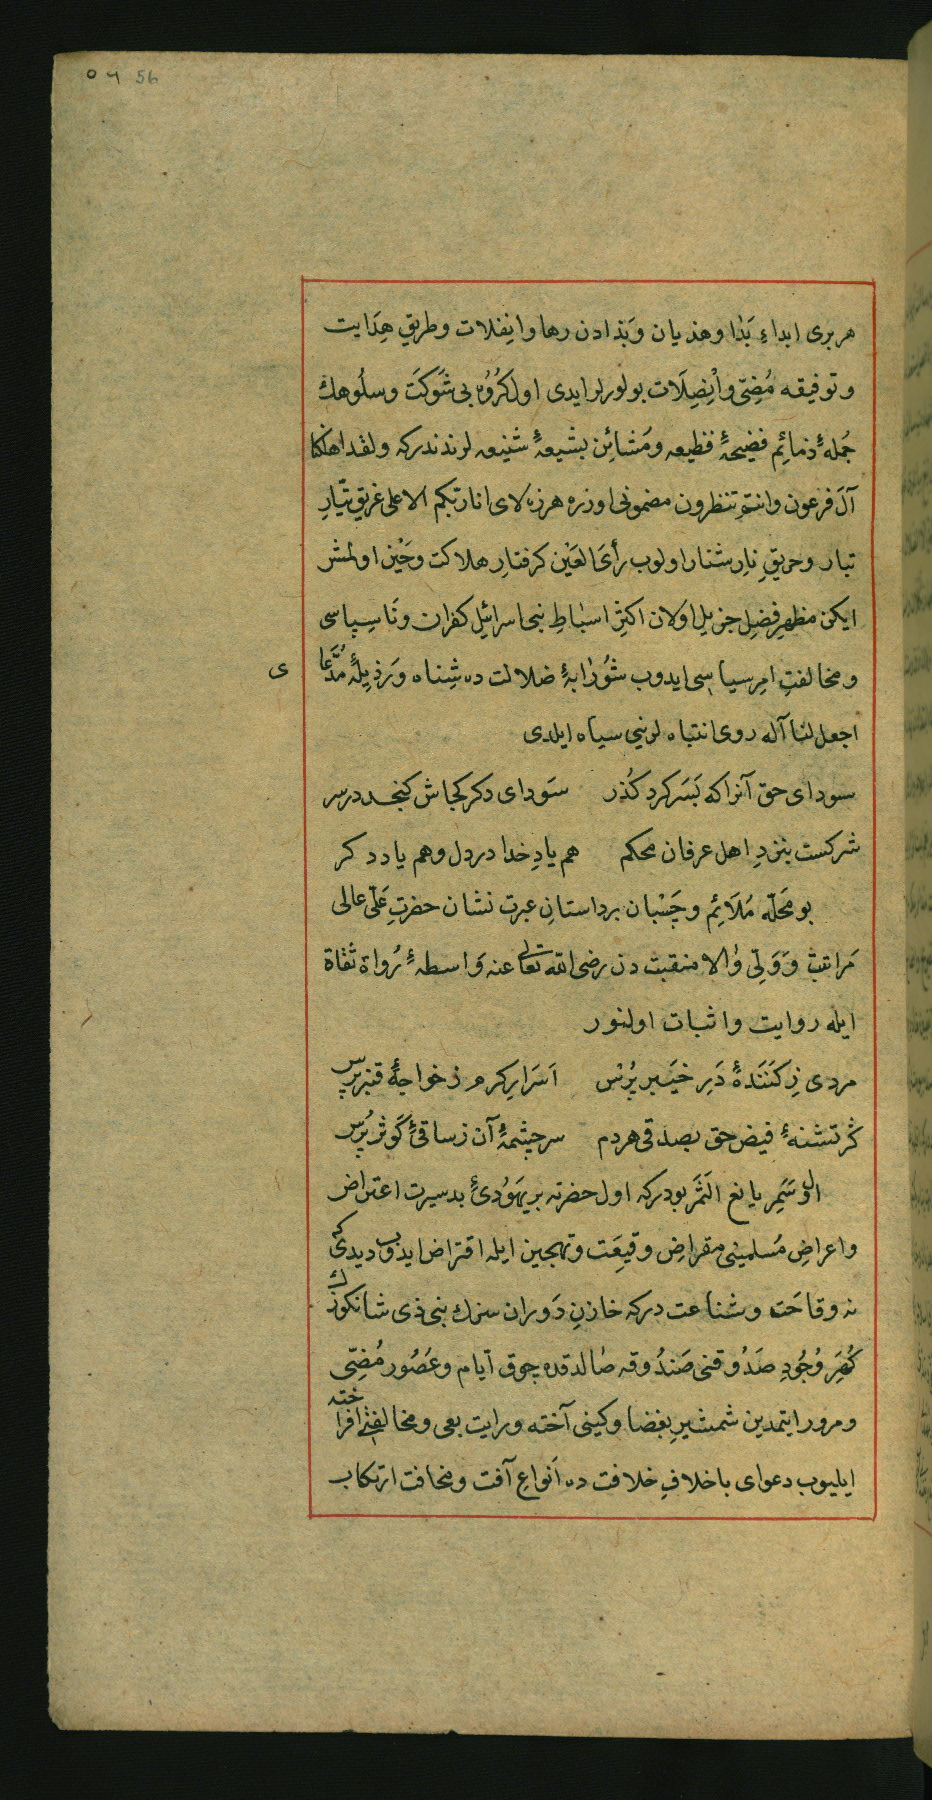 ٥٦ 56
هر بری ابداءِ بَذا و هذیان وَبَذادن رها وانِفلات و طریقِ هِدَایت
و توفیقه مُضِیّ و اْنِصِلَات بولورلر ایدی اول کرُوُه بی شَوکَت و سلُوهك
جُملهٔ ذمائِم فضیحهٔ فظیعه و مَشائِن بشیعهٔ شنیعه لرندندرکه ولقد اهلکنا
آلَ فرعون وانتم تنظرون مضمونی اوزره هرزه لای انا ربّکم الاعلی غریقِ تیّارِ
تبار و حریقِ نارِ شنار اولوب رأیَ العَیْن کرفتارِ هلاکت و حَیْن اولمش
ایکن مظهرِ فضلِ جزیل اولان اکثرِ اسبَاطِ بنی اسرائیل کفران و نَاسِپاسی
و مخالفتِ امرِ سیاسی ایدوب شُوْرابهٔ ضلالت ده شِناه و رَذیلهٔ مُدّعَا
ی
اجعل لنا آله روی انتباه لرینی سیاه ایلدی
سودای حق آنراکه بَسَر کرد کُذر سَودای دکر کجاش کنجد در سر
شرکست بنزدِ اهل عرفان محکم هم یادِ خدا در دل و هم یاد دکر
بو محَلّه مُلَائِم و چَسْبان بر داستانِ عبرت نشان حضرتِ عَلّیِ عالی
مَراتب وَوَلّیِ وْالا منقبت دن رضی الله تعالی عنه وَاسطهٔ رُواة ثقاة
ایله روایت و اثبات اولنور
مردی زِ کَنَندَهٔ دَرِ خیَبر پُرْس اَسَرارِ کرم ز خواجهٔ قنبر پرس
کر تشنهٔ فیض حق بصدقی هردم سرچشمهٔ آن ز ساقیٔ کَوثر پُرس
اول سَمَرِ یانع الثَمَر بودرکه اول حضرته بر یهَوُدیٔ بدسیرت اعتراض
و اعراضِ مُسلمینی مقراضِ وقیعَت و تهجین ایله اقتراض ایدوب دیدی که
نه وقاحَت و شناعت درکه خازنِ دَوران سزك نبی ذی شانکوزك
کُهَرِ وُجُودِ صَدُوقنی صَندُوقه صالدقده چوق ایّام و عَصُور مُضِیّ
و مرور ایتمدین شمشیرِ بغضا و کینی آخته و رایت بغی و مخالفتی افراخته
ایلیوب دعوای باخلافِ خلافت ده اَنواعِ آفت و مخافت ارتکاب